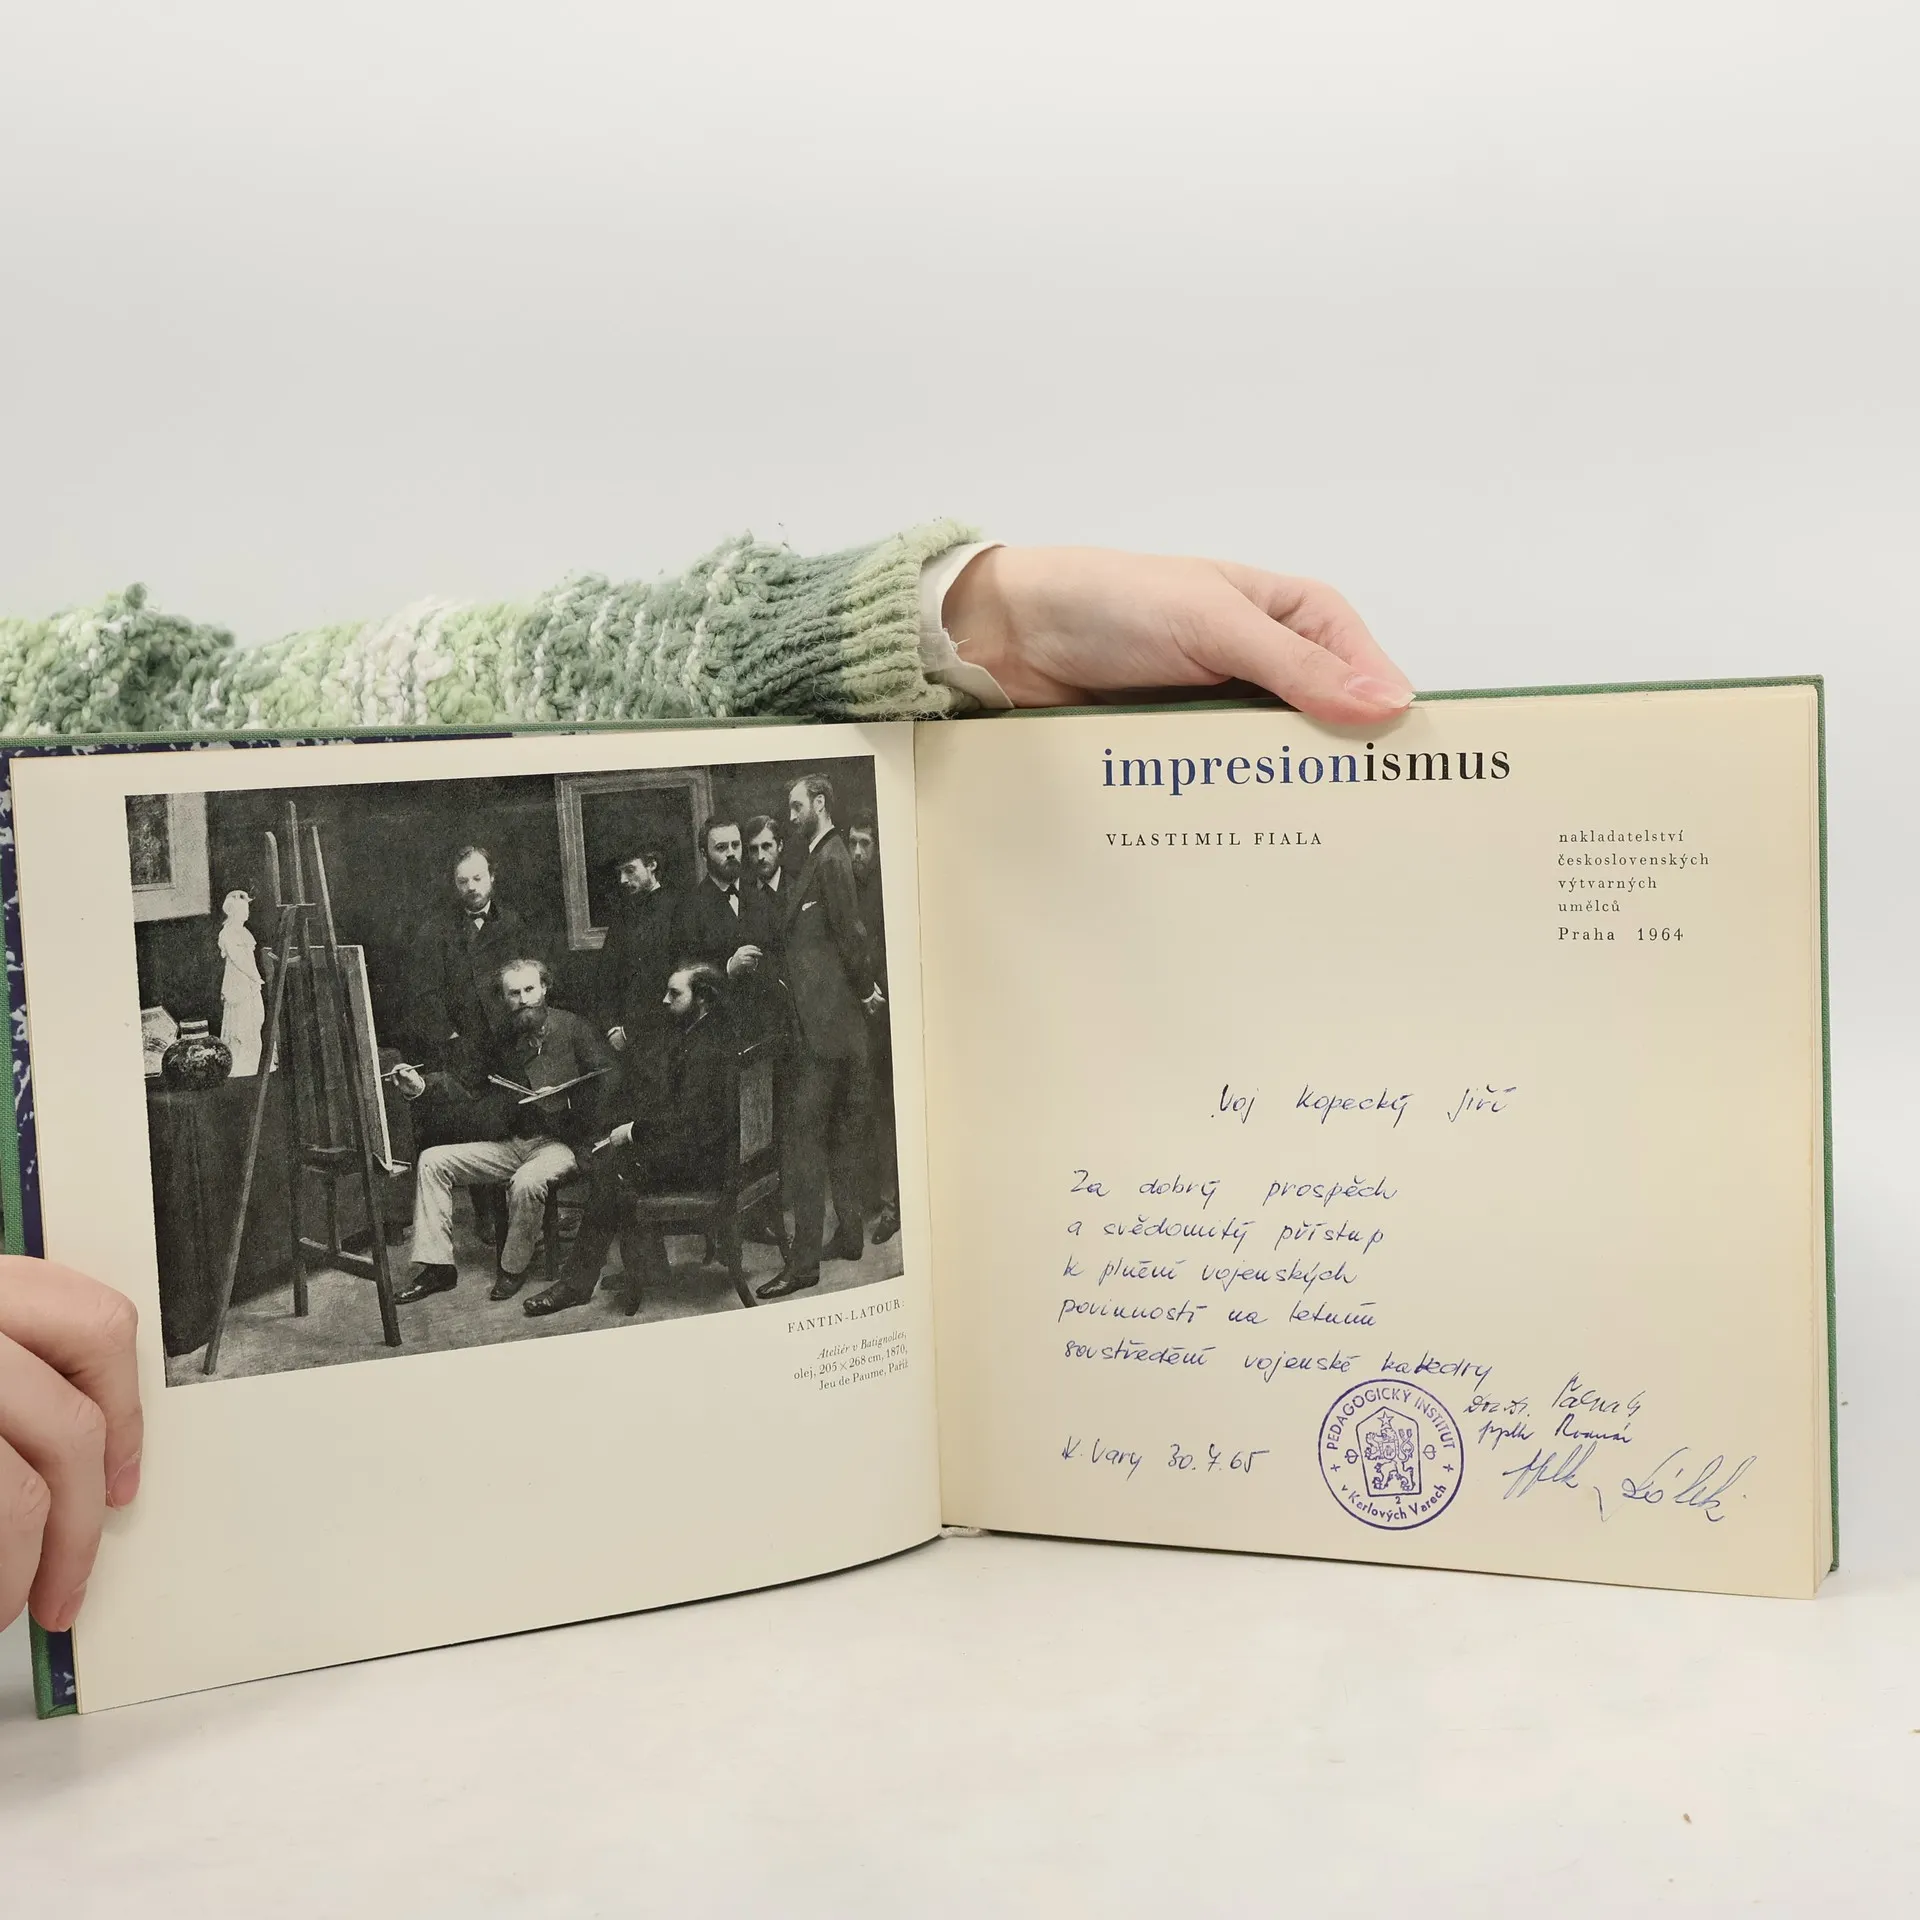 FANTIN-LATOUR:
Ateliér v Batignolles,
olej, 205 × 268 cm, 1870,
Jeu de Paume, Paříž
impresionismus
VLASTIMIL FIALA
nakladatelství
československých
výtvarných
umělců
Praha 1964
Voj Kopecký Jiří
Za dobrý prospěch
a svědomitý přístup
k plnění vojenských
povinností na letním
soustředění vojenské katedry
K. Vary 30.7.65
PEDAGOGICKÝ INSTITUT
v Karlových Varech
2
pplk
pplk